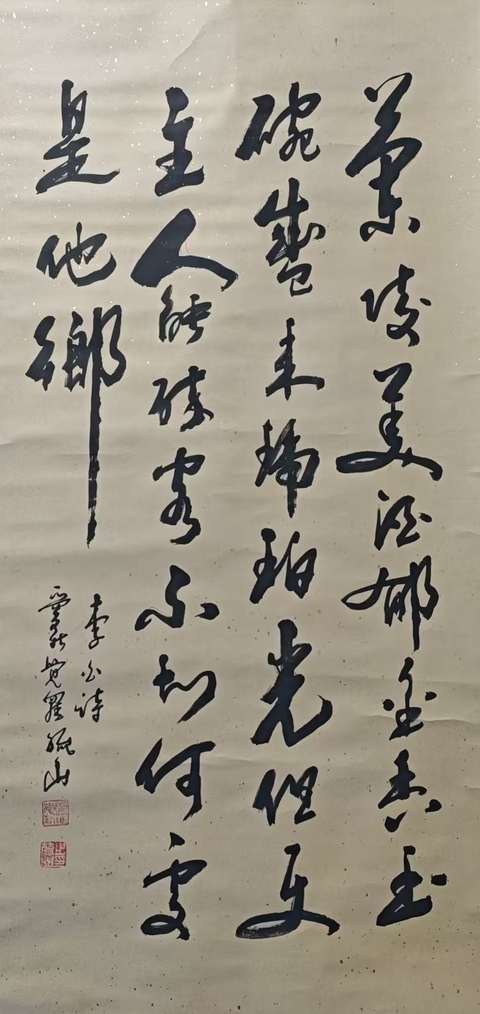 蘭陵美酒郁金香玉
碗盛来琥珀光但使
主人能醉客不知何處
是他鄉
李白詩
愛新覺羅毓山